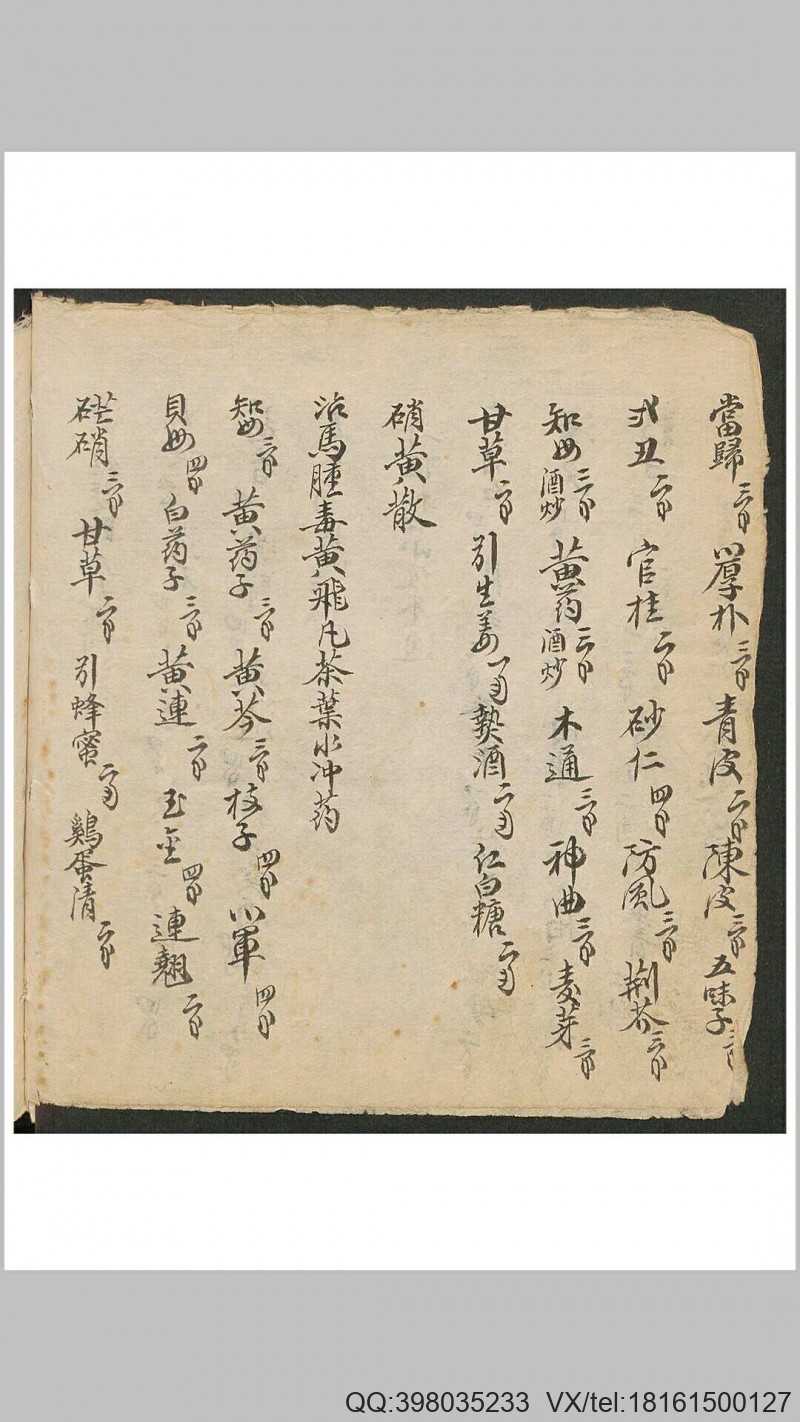 當歸三錢 川厚朴三錢 青皮二錢 陳皮三錢 五味子三
弍丑二錢 官桂二錢 砂仁四錢 防風三錢 荆芥三錢
知母三錢酒炒 黄药三錢酒炒 木通三錢 神曲三錢 麦芽三錢
甘草二錢 引生姜一両 㷅酒二両 仁白糖二両
硝黄散
治馬腫毒黄飛凡茶葉水冲药
知母三錢 黄药子三錢 黄芩三錢 枝子四錢 川軍四錢
貝母四錢 白药子三錢 黄連二錢 玉金四錢 連翹二錢
硭硝三錢 甘草二錢 引蜂蜜二両 鷄蛋清二錢
QQ:398035233 VX/tel:18161500127